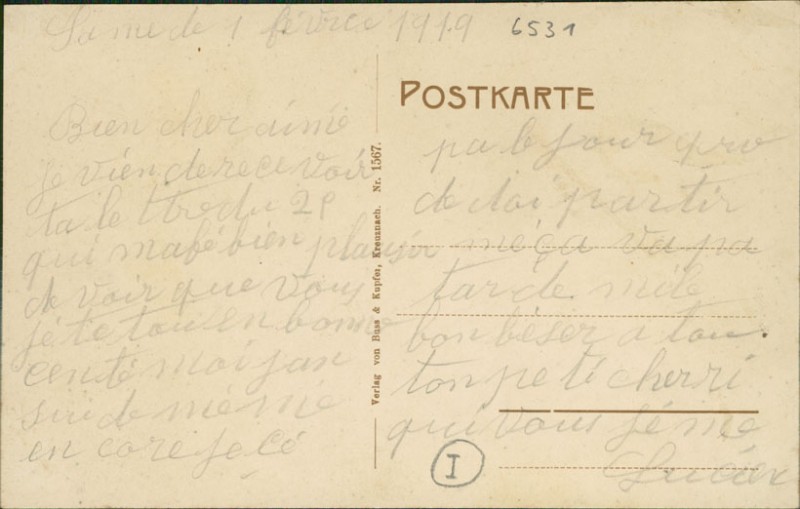 Samede 1 février 1919
6531
POSTKARTE
Bien cher aimé
je vien de recevoir
ta lettre du 29
qui ma fé bien plaisir
de voir que vous
jéte tou en bonne
centé moi jan
sui de mémé
en core je cé
Verlag von Buss & Kupfer, Kreuznach. Nr. 1567.
pa le jour que
de doi partir
mé ça va pa
tardé mile
bon béser a tou.
ton peti cherri
qui vous jéme
I